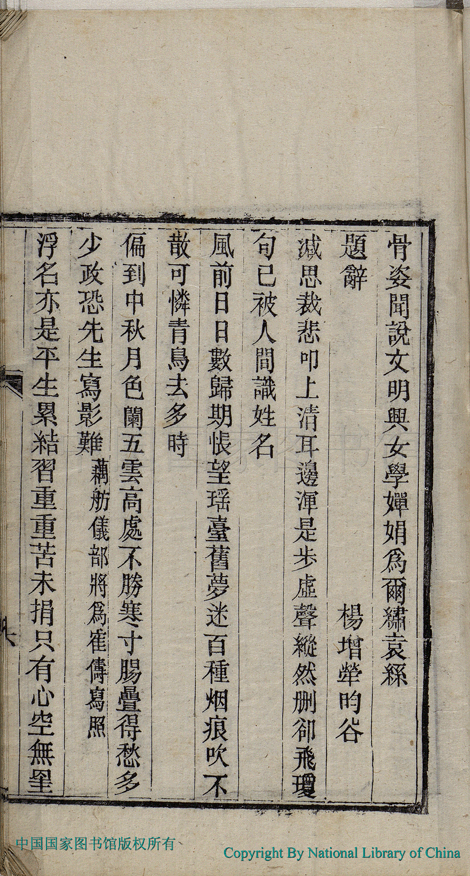 骨姿聞說文明興女學嬋娟爲爾繡袁絲
題辭 楊增犖昀谷
減思裁悲叩上清耳邊渾是步虛聲縱然刪卻飛瓊
句已被人間識姓名
風前日日數歸期悵望瑶臺舊夢迷百種烟痕吹不
散可憐青鳥去多時
偏到中秋月色闌五雲高處不勝寒寸腸疊得愁多
少政恐先生寫影難 藕舫儀部將爲隺儔寫照
浮名亦是平生累結習重重苦未捐只有心空無罣
中国国家图书馆版权所有
Copyright By National Library of China